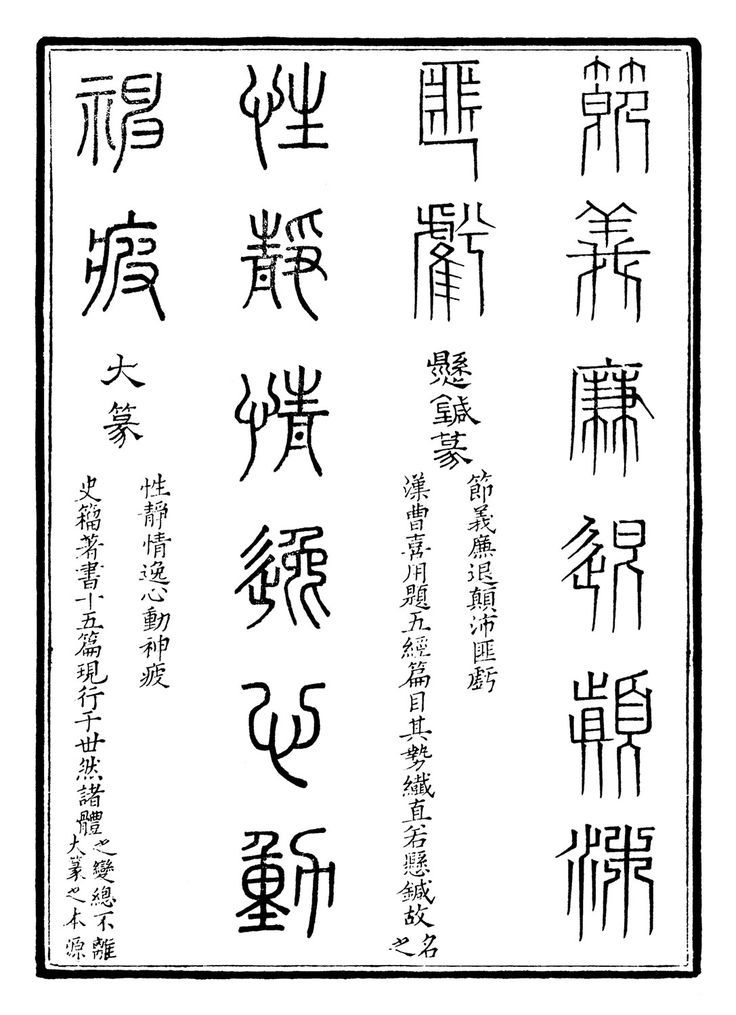 節義廉退顛沛
匪虧
懸鍼篆
節義廉退顛沛匪虧
漢曹喜用題五經篇目其勢纖直若懸鍼故名之
性靜情逸心動
神疲
大篆
性靜情逸心動神疲
史籕著書十五篇現行于世然諸體之變總不離大篆之本源